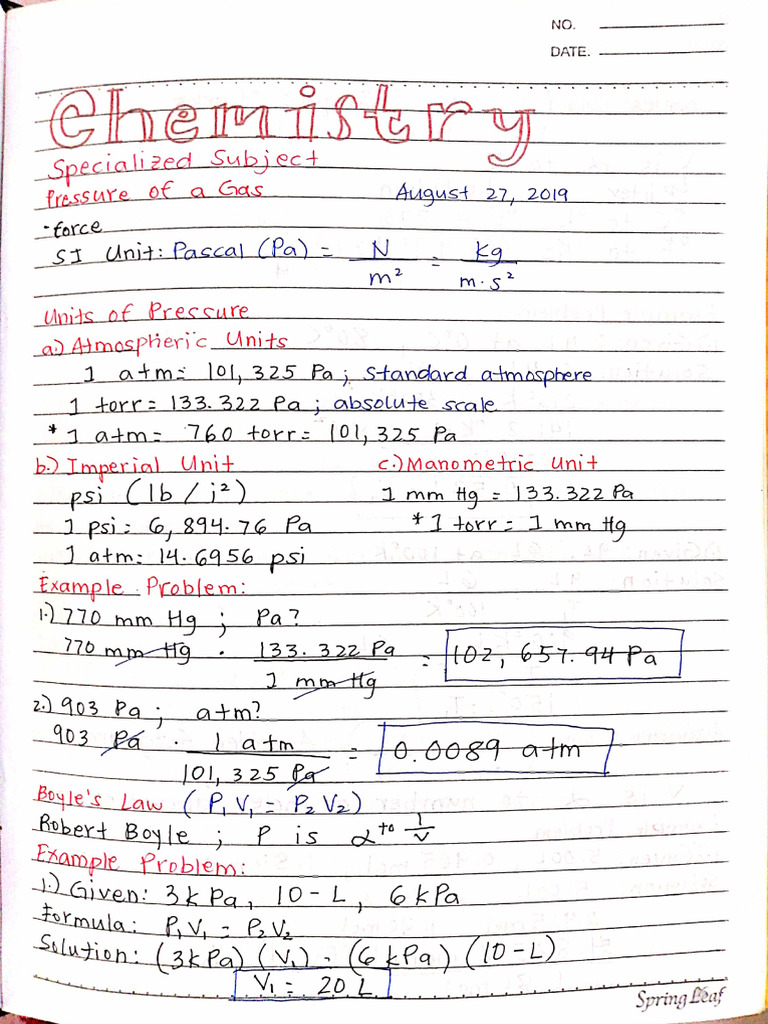 NO.
DATE.
Chemistry
Specialized Subject
Pressure of a Gas August 27, 2019
-force
SI Unit: Pascal (Pa) = N/m² = Kg/m·s²
Units of Pressure
a.) Atmospheric Units
1 atm = 101, 325 Pa ; standard atmosphere
1 torr = 133.322 Pa ; absolute scale
* 1 atm = 760 torr = 101, 325 Pa
b.) Imperial Unit c.) Manometric Unit
psi (lb / i²) 1 mm Hg = 133.322 Pa
1 psi = 6, 894.76 Pa * 1 torr = 1 mm Hg
1 atm = 14.6956 psi
Example Problem:
1.) 770 mm Hg ; Pa?
770 mm Hg · 133.322 Pa / 1 mm Hg = 102, 657.94 Pa
2.) 903 Pa ; atm?
903 Pa · 1 atm / 101, 325 Pa = 0.0089 atm
Boyle's Law (P₁V₁ = P₂V₂)
Robert Boyle ; P is α to 1/V
Example Problem:
1.) Given: 3 kPa, 10-L, 6 kPa
Formula: P₁V₁ = P₂V₂
Solution: (3kPa) (V₁) = (6 kPa) (10-L)
V₁ = 20 L
Spring Leaf